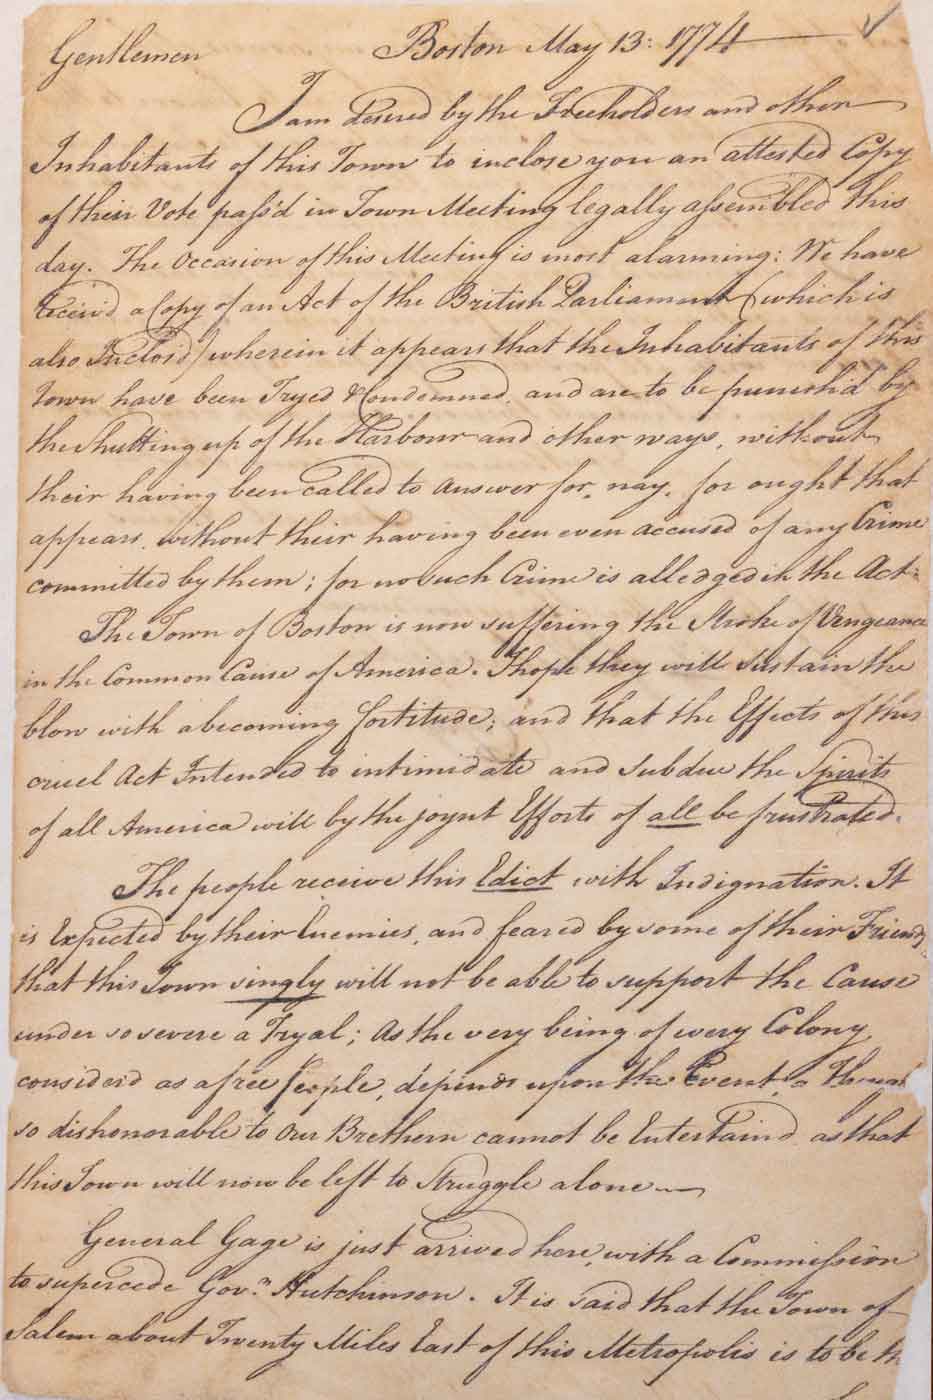 Gentlemen Boston May 13: 1774
I am desired by the Freeholders and other
Inhabitants of this Town to inclose you an attested Copy
of their Vote pass'd in Town Meeting legally assembled this
day. The Occasion of this Meeting is most alarming: We have
receiv'd a Copy of an Act of the British Parliament (which is
also Inclos'd) wherein it appears that the Inhabitants of this
Town have been Tryed & Condemned, and are to be punish'd by
the Shutting up of the Harbour and other ways, without
their having been called to answer for, nay, for ought that
appears, without their having been even accused of any Crime
committed by them; for no such Crime is alledged in the Act:
The Town of Boston is now suffering the Stroke of Vengeance
in the Common Cause of America. I hope they will sustain the
blow with a becoming fortitude; and that the Effects of this
cruel Act Intended to intimidate and subdue the Spirits
of all America will by the joynt Efforts of all be frustrated.
The people receive this Edict with Indignation. It
is Expected by their Enemies, and feared by some of their Friends
that this Town singly will not be able to support the Cause
under so severe a Tryal; As the very being of every Colony,
consider'd as a free People, depends upon the Event, a
so dishonorable to our Brethern cannot be Entertain'd as that
this Town will now be left to Struggle alone
General Gage is just arrived here, with a Commission
to supercede Govr. Hutchinson. It is said that the Town of
Salem about Twenty Miles East of this Metropolis is to be